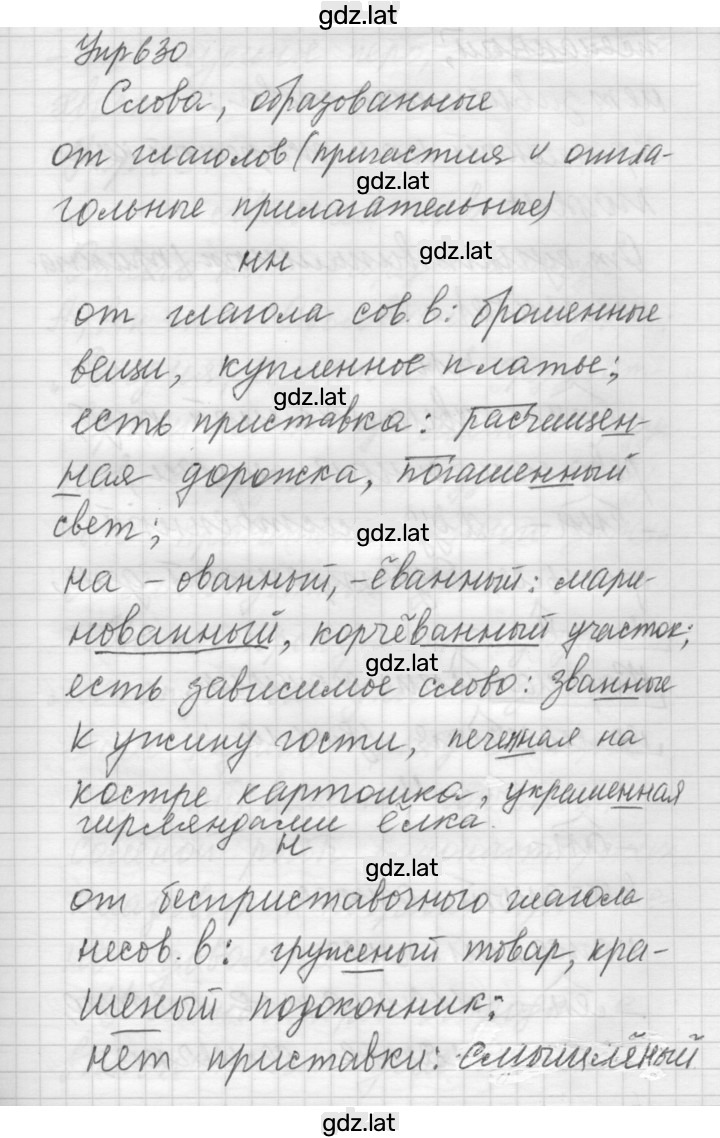 gdz.lat
Упр 630
Слова, образованные
от глаголов (причастия и отгла-
gdz.lat
гольные прилагательные)
нн
gdz.lat
от глагола сов. в: брошенные
вещи, купленное платье;
gdz.lat
есть приставка: расчищен-
ная дорожка, погашенный
свет;
gdz.lat
на -ованный, -ёванный: мари-
нованный, корчёванный участок;
gdz.lat
есть зависимое слово: званные
к ужину гости, печенная на
костре картошка, украшенная
гирляндами ёлка.
н
gdz.lat
от бесприставочного глагола
несов. в: груженый товар, кра-
шеный подоконник;
нет приставки: смышлёный
gdz.lat